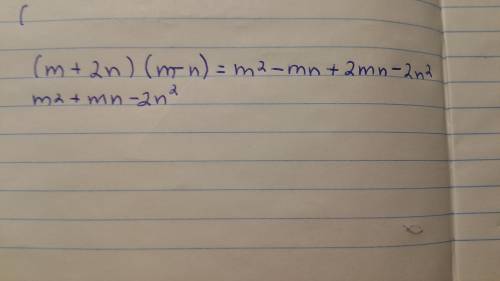 (
(m + 2n) (m - n) = m² - mn + 2mn - 2n²
m² + mn - 2n²